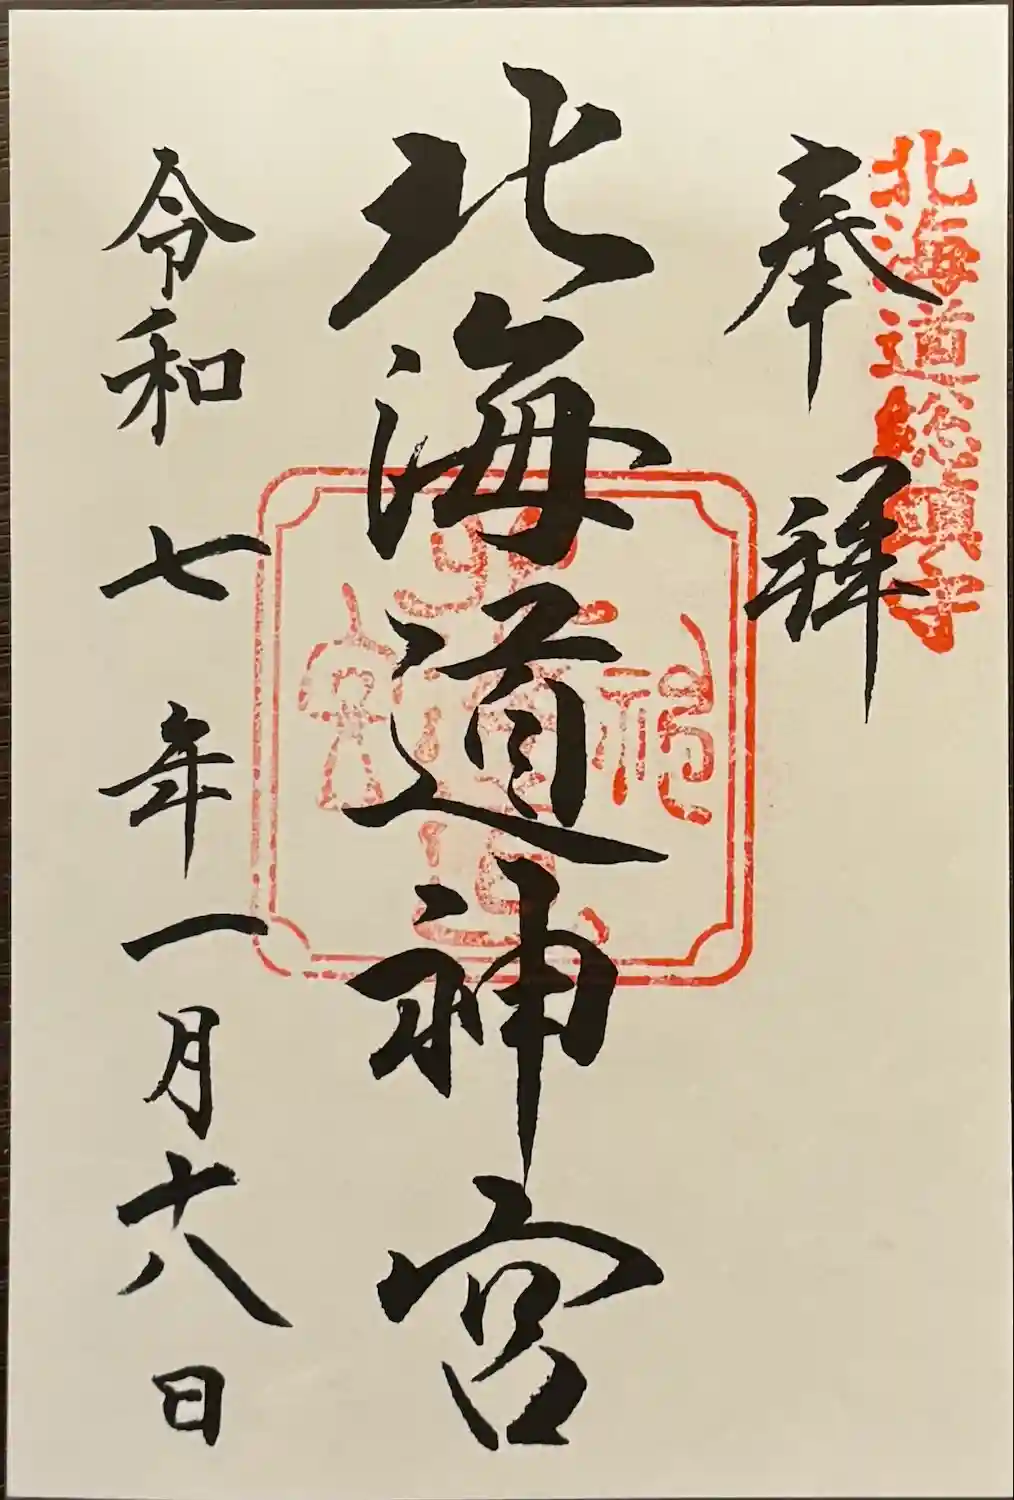 北海道総鎮守
奉拝
北海道神宮
令和七年一月十八日